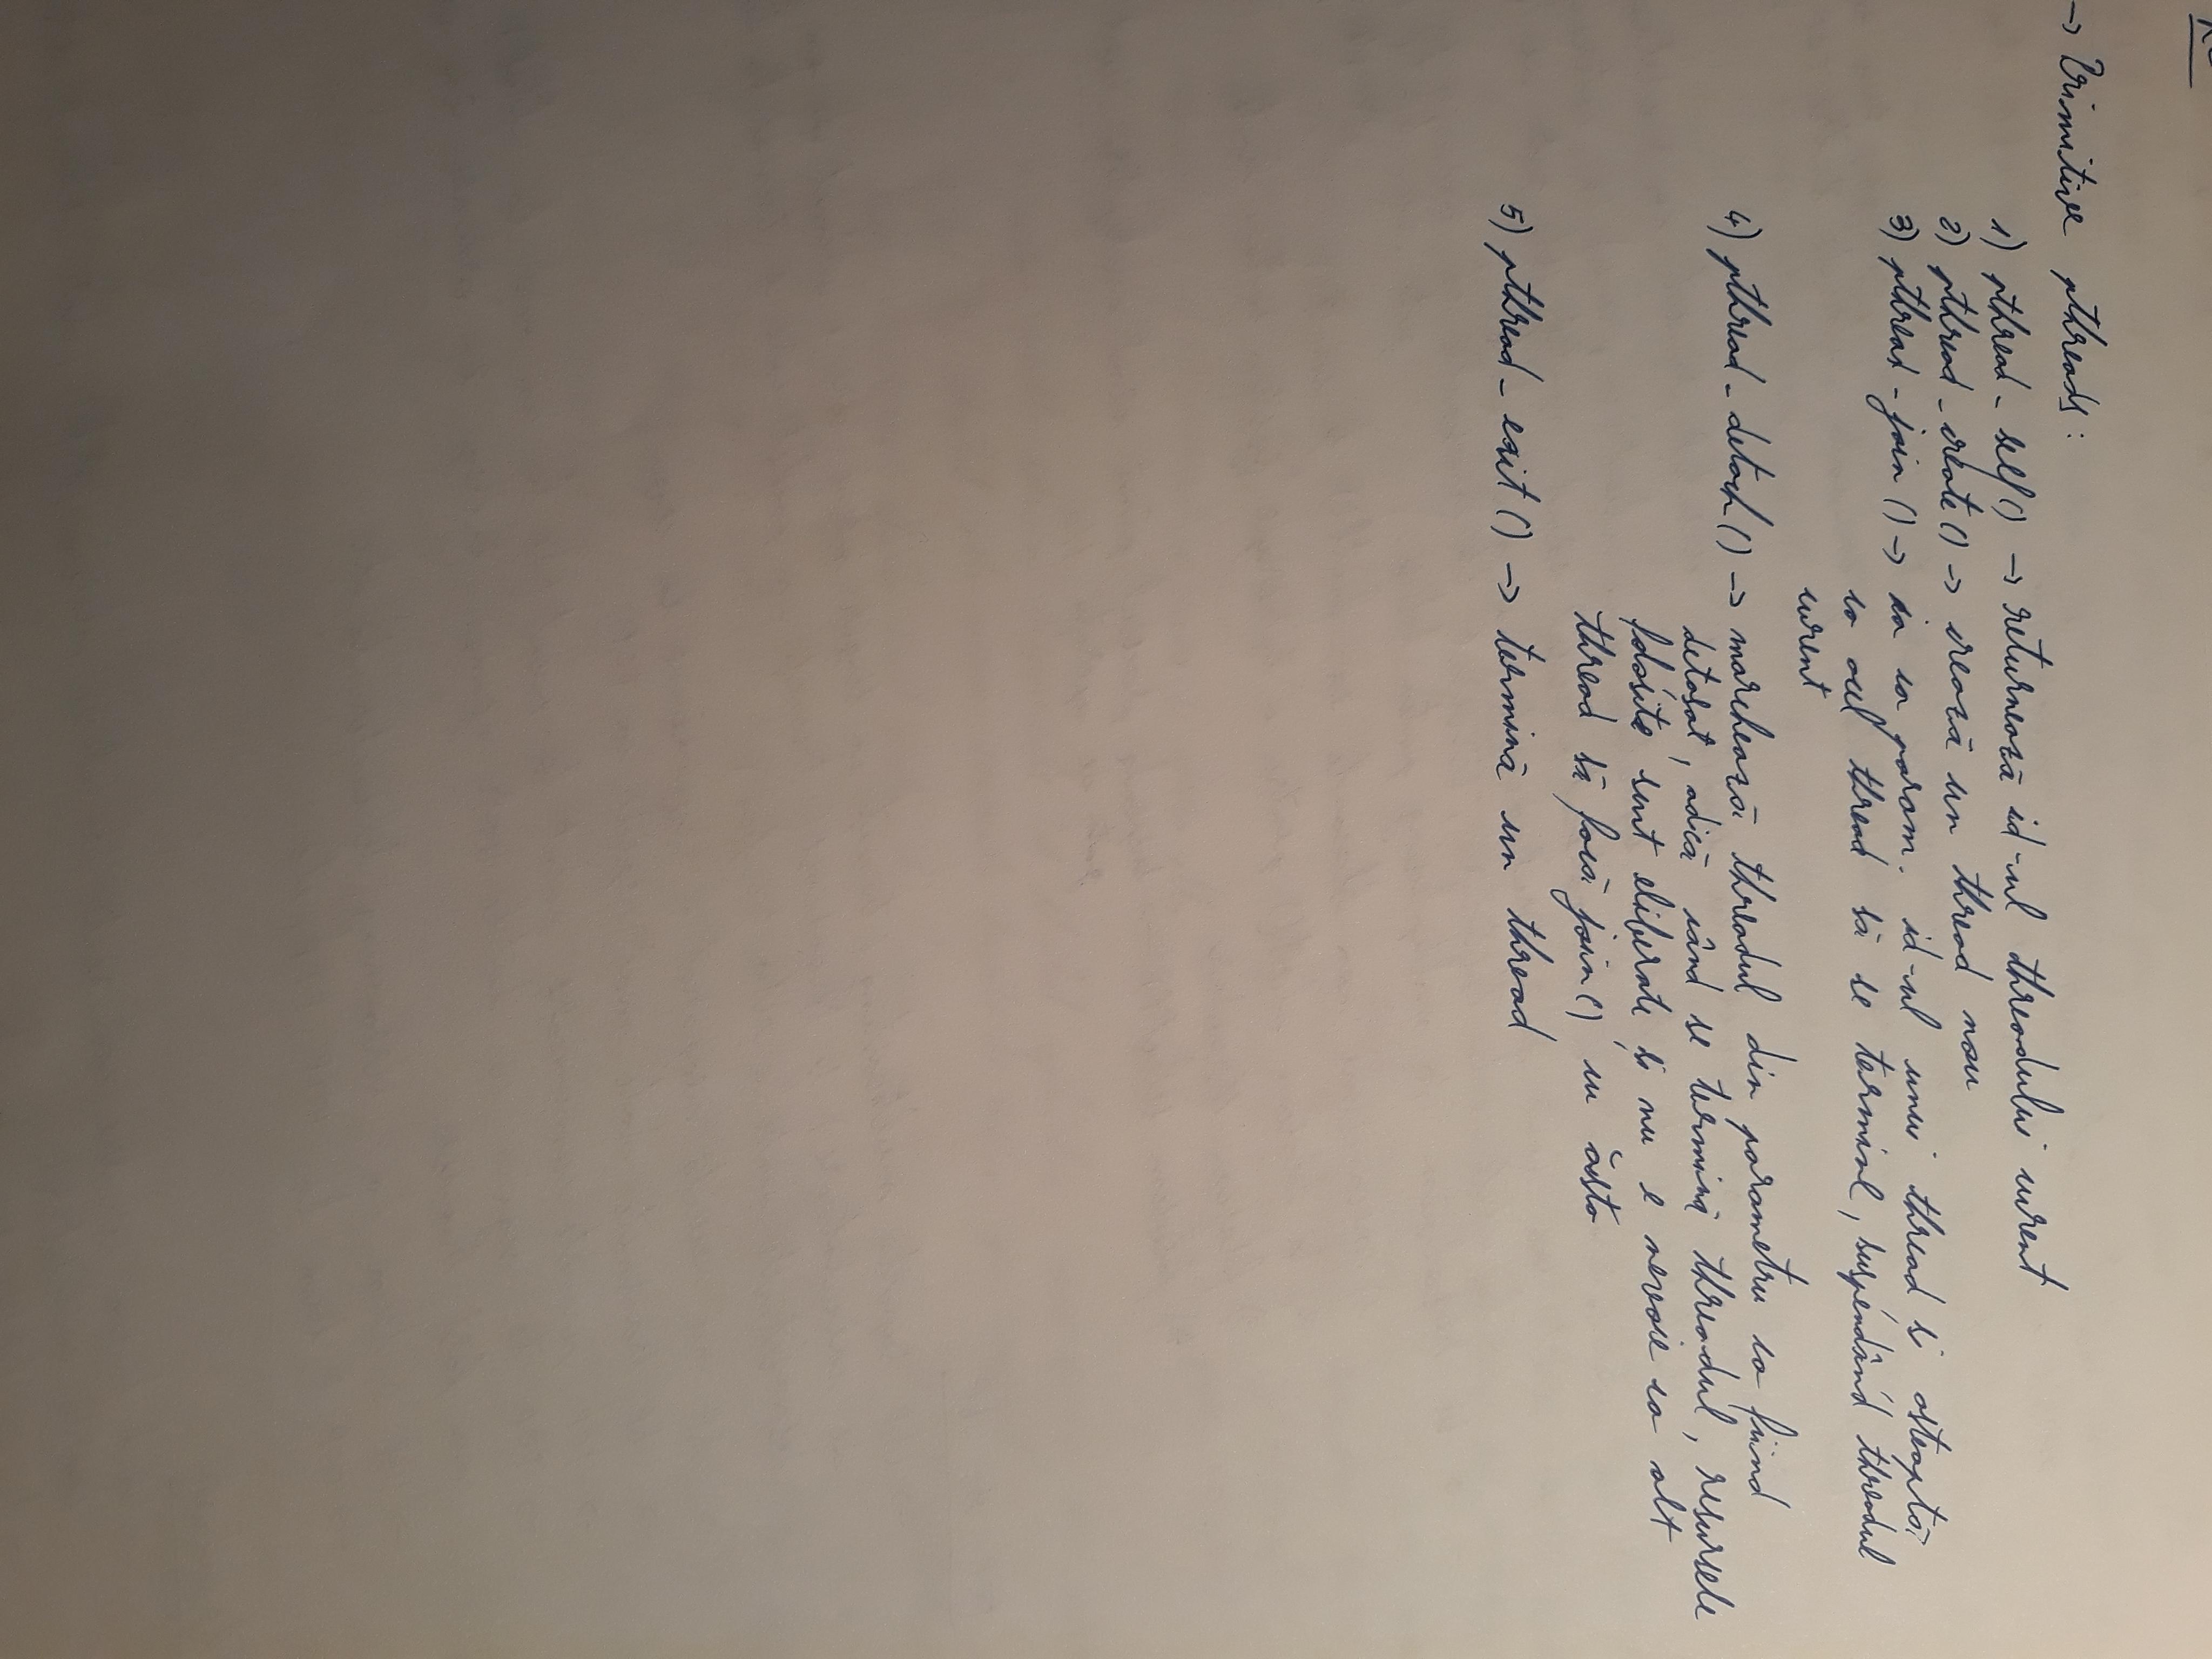 → Primitive pthreads:
1) pthread_self() → returnează id-ul threadului curent
2) pthread_create() → crează un thread nou
3) pthread_join() → ia ca param. id-ul unui thread și așteaptă
ca acel thread să se termine, suspendând threadul
curent
4) pthread_detach() → marchează threadul din parametru ca fiind
detașat, adică când se termină threadul, resursele
folosite sunt eliberate și nu e nevoie ca alt
thread să facă join() cu ăsta
5) pthread_exit() → termină un thread